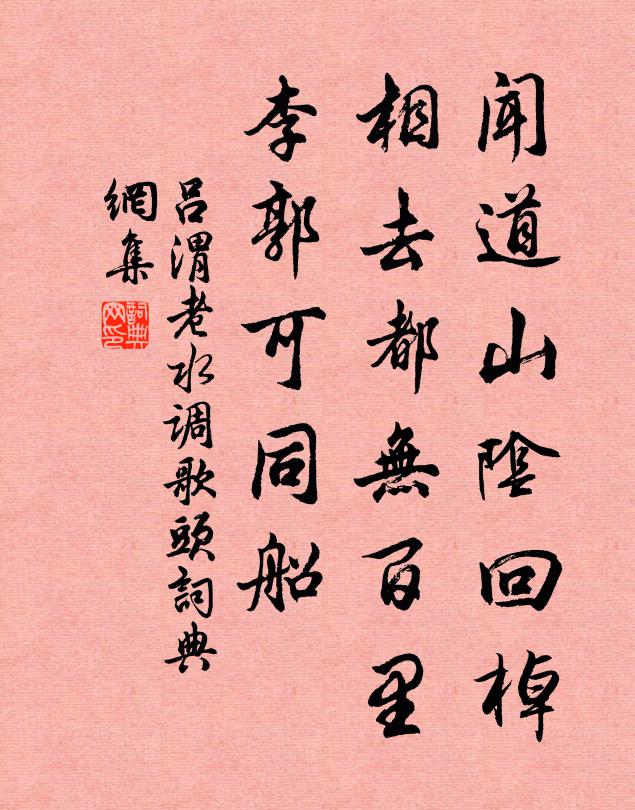 聞道山陰回棹
相去都無百里
李郭可同船
吕渭老水调歌頭詞典
網集
詞典
网印